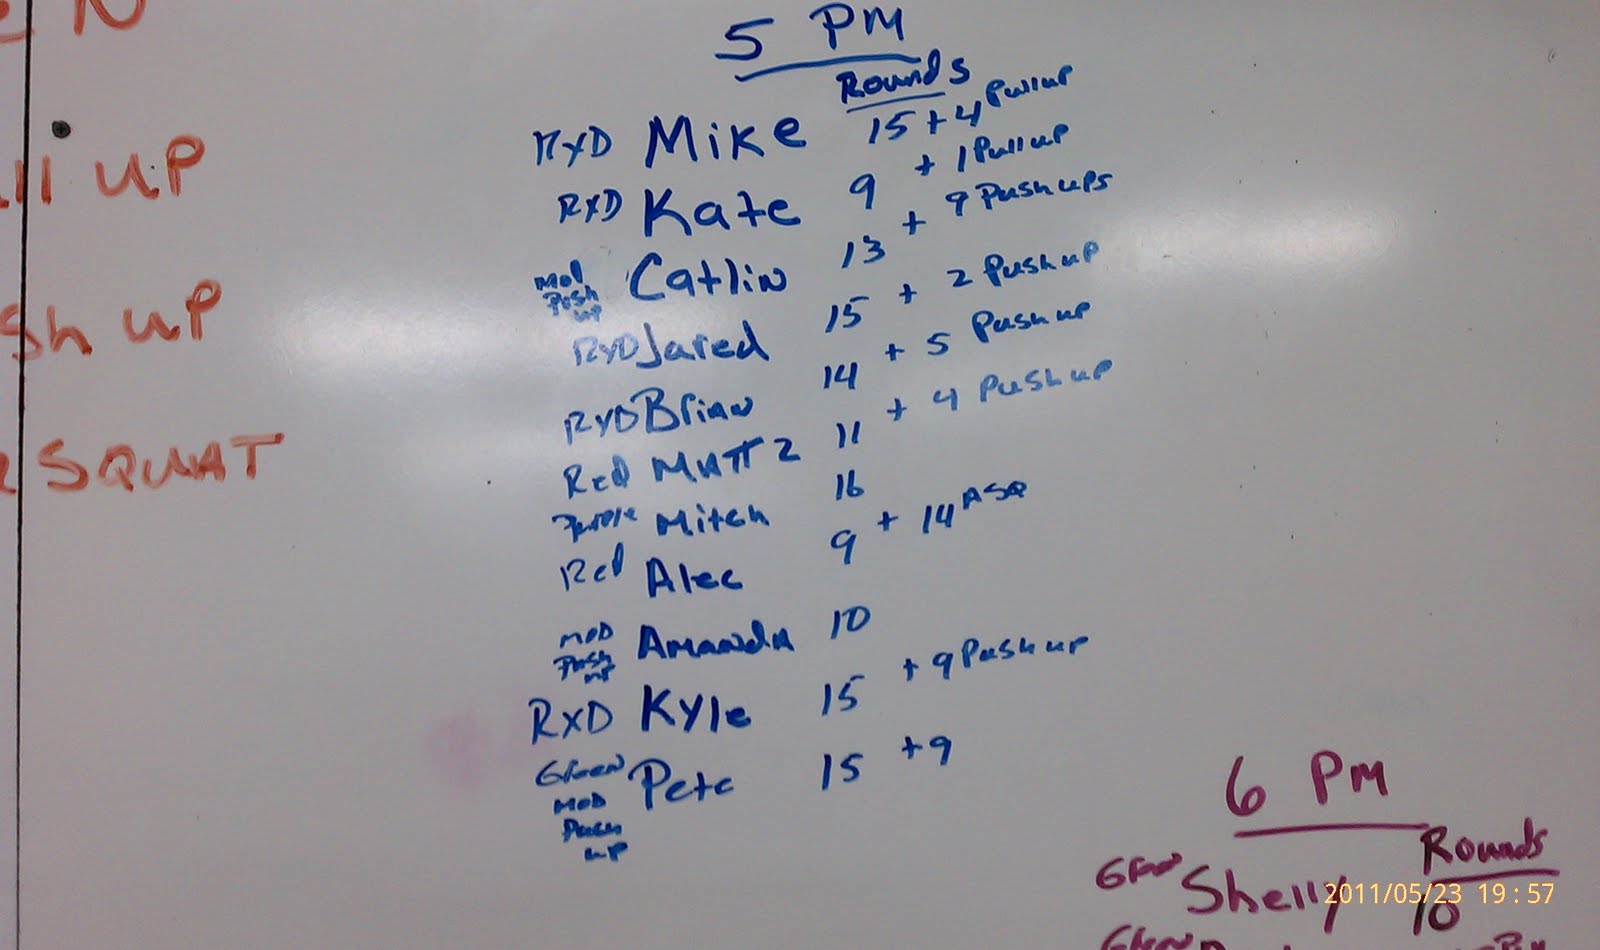 EN
ll UP
sh UP
SQUAT
5 PM
Rounds
RXD Mike 15 + 4 Pullup
RXD Kate 9 + 1 Pull up
Mod Push up Catlin 13 + 9 Push ups
RXD Jared 15 + 2 Push up
RXD Brian 14 + 5 Push up
Red Matt 2 11 + 4 Push up
Purple Mitch 16
Red Alec 9 + 14 ASQ
MOD Push up Amanda 10
RXD Kyle 15 + 9 Push up
Green MOD Push up Pete 15 + 9
6 PM
Rounds
Green Shelly 10
Green
2011/05/23 19:57